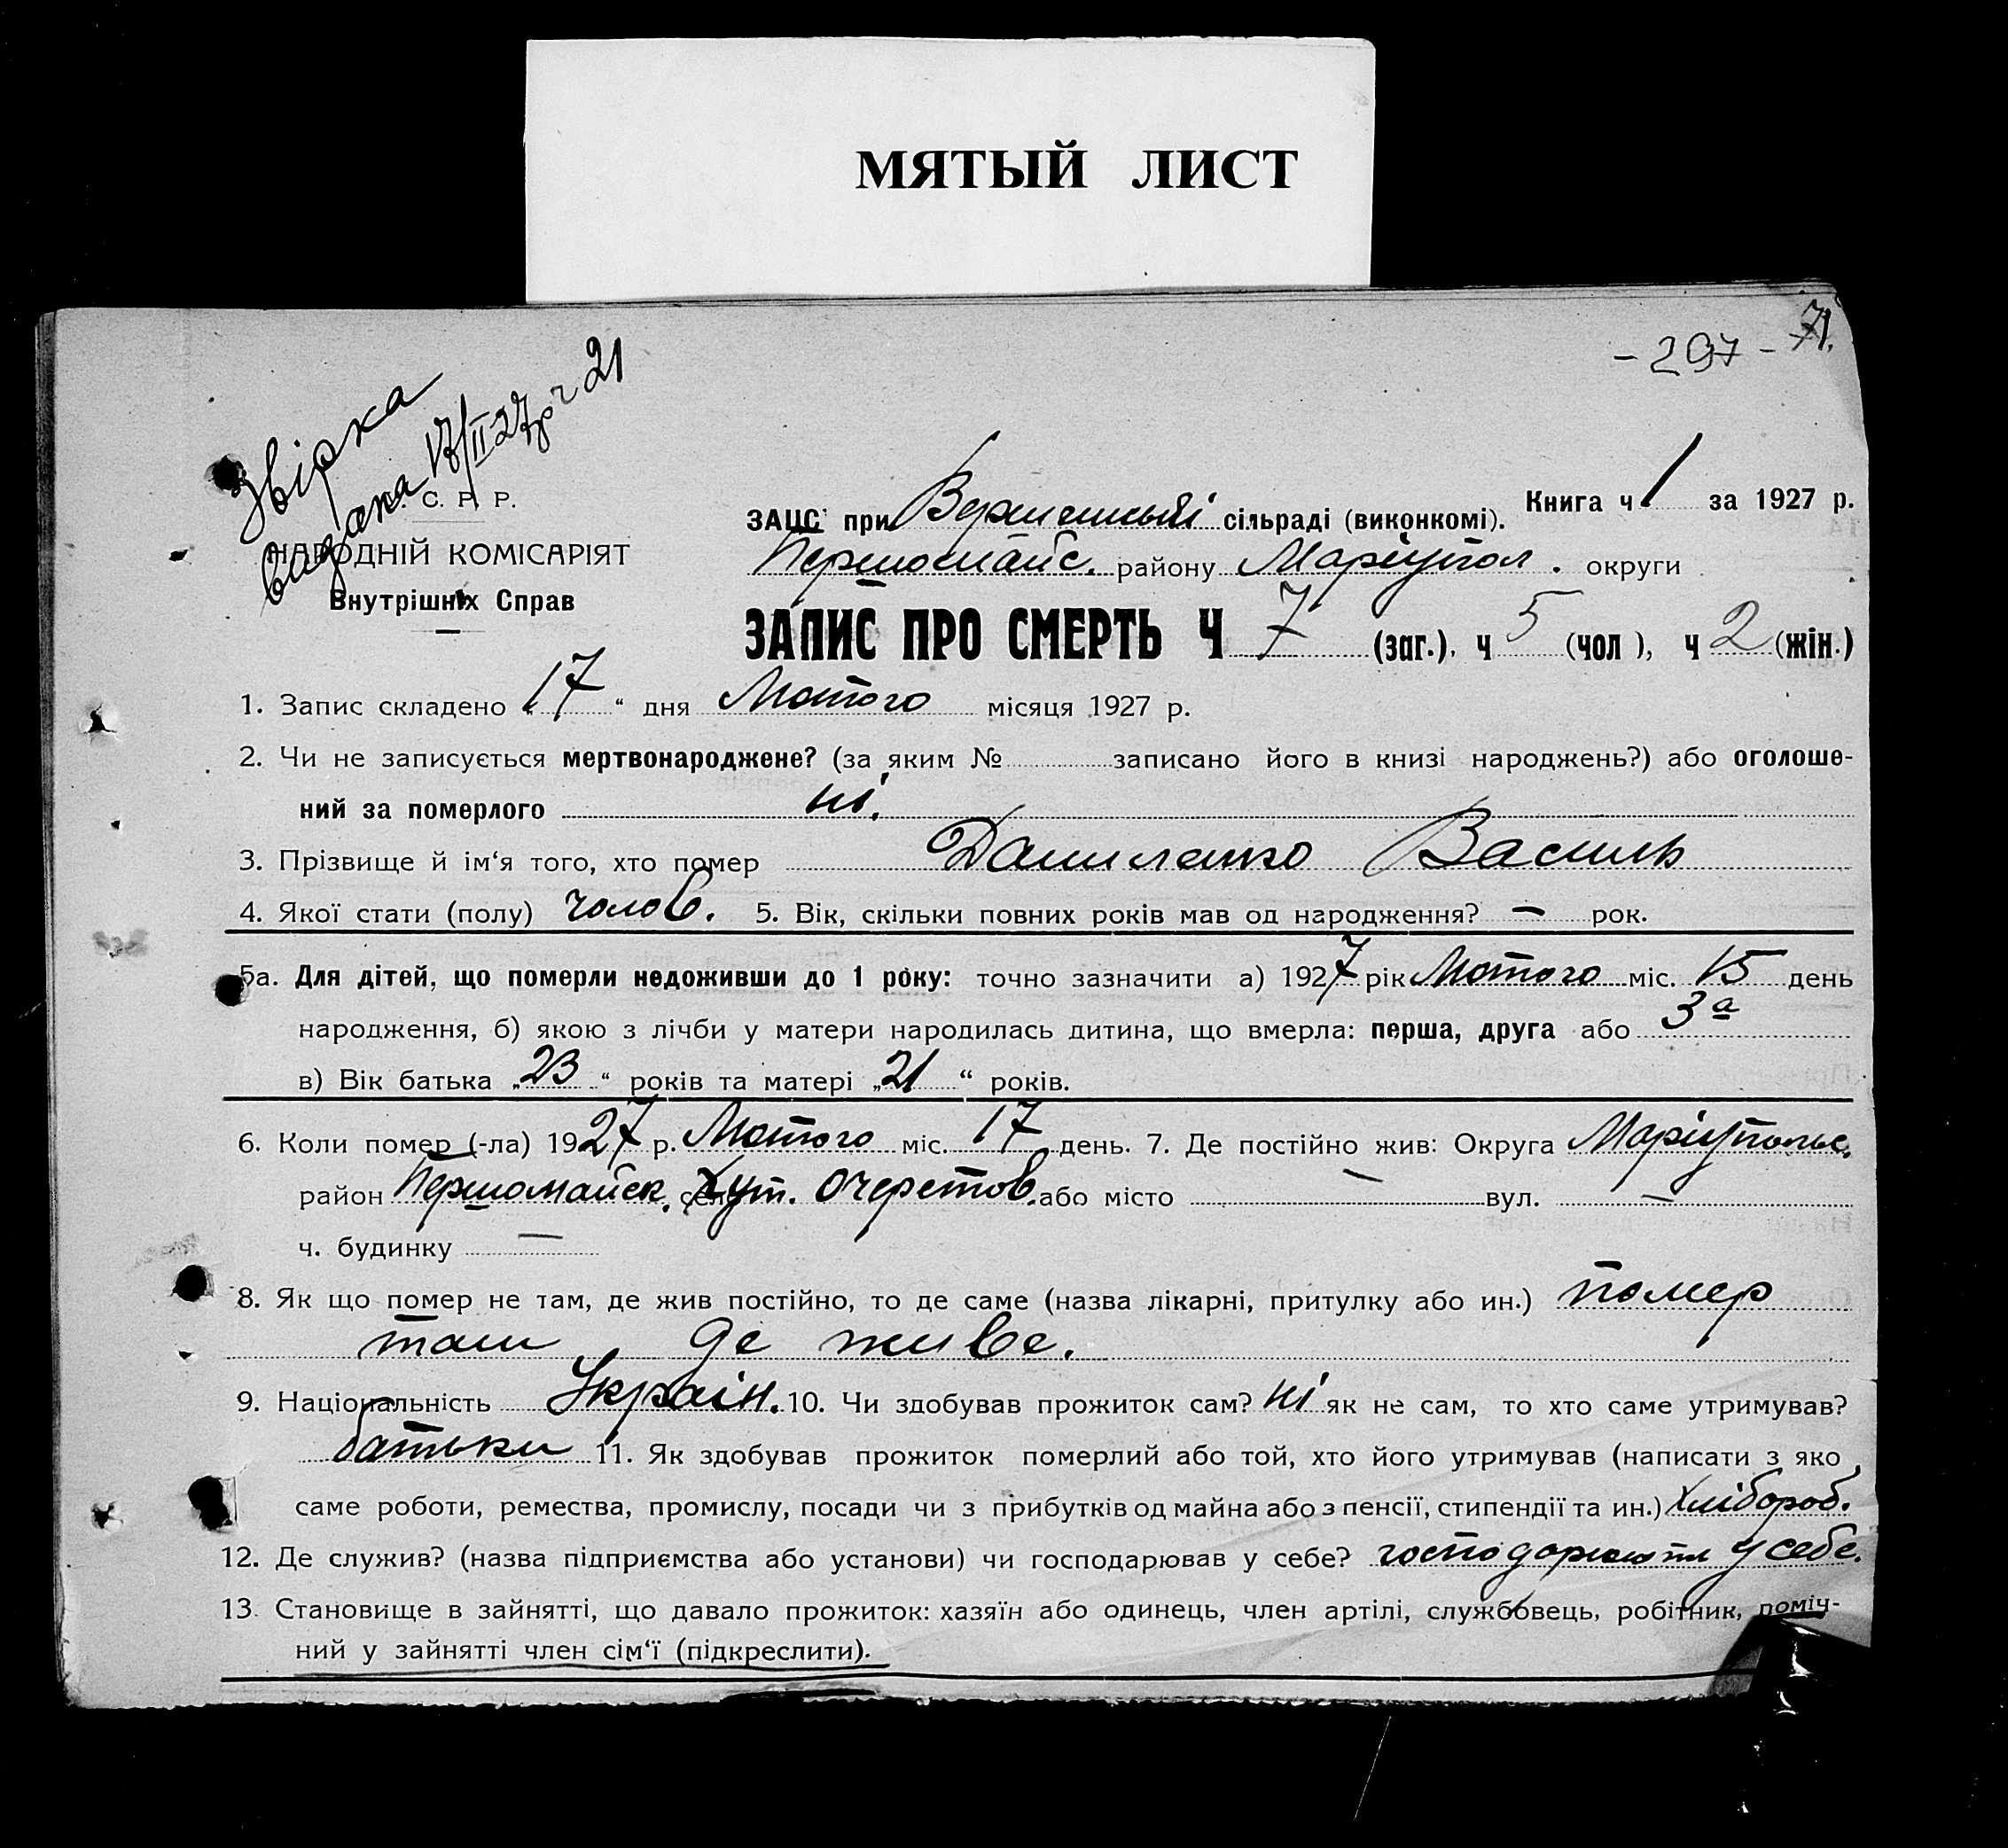 МЯТЫЙ ЛИСТ
- 297 - 71.
Звірка
видана 17/II 27р ч 21
С. Р. Р.
НАРОДНІЙ КОМІСАРІЯТ
Внутрішніх Справ
Книга ч 1 за 1927 р.
ЗАЦС при сільраді (виконкомі).
Першомайс. району Маріупол. округи
ЗАПИС ПРО СМЕРТЬ Ч 7 (заг.), ч 5 (чол), ч 2 (жін.)
1. Запис складено „17“ дня Лютого місяця 1927 р.
2. Чи не записується мертвонароджене? (за яким № записано його в книзі народжень?) або оголоше-
ний за померлого ні.
3. Прізвище й ім‘я того, хто помер Даниленко Василь
4. Якої стати (полу) чолов. 5. Вік, скільки повних років мав од народження? — рок.
5а. Для дітей, що померли недоживши до 1 року: точно зазначити а) 1927 рік Лютого міс. 15 день
народження, б) якою з лічби у матери народилась дитина, що вмерла: перша, друга або 3а
в) Вік батька „23“ років та матері „21“ років.
6. Коли помер (-ла) 1927 р. Лютого міс. 17 день. 7. Де постійно жив: Округа Маріупольс.
район Першомайск. село Хут. Очеретов. або місто — вул. —
ч. будинку —
8. Як що помер не там, де жив постійно, то де саме (назва лікарні, притулку або ин.) помер
там де живе.
9. Національність Україн. 10. Чи здобував прожиток сам? ні як не сам, то хто саме утримував?
батьки 11. Як здобував прожиток померлий або той, хто його утримував (написати з яко
саме роботи, ремества, промислу, посади чи з прибутків од майна або з пенсії, стипендії та ин.) Хлібороб.
12. Де служив? (назва підприємства або установи) чи господарював у себе? господарюють у себе.
13. Становище в зайнятті, що давало прожиток: хазяїн або одинець, член артілі, службовець, робітник, поміч-
ний у зайнятті член сім‘ї (підкреслити).